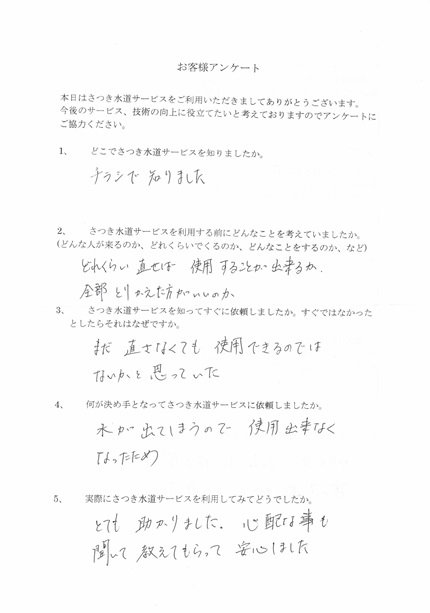 お客様アンケート
本日はさつき水道サービスをご利用いただきましてありがとうございます。
今後のサービス、技術の向上に役立てたいと考えておりますのでアンケートに
ご協力ください。
1、 どこでさつき水道サービスを知りましたか。
チラシで 知りました
2、 さつき水道サービスを利用する前にどんなことを考えていましたか。
(どんな人が来るのか、どれくらいでくるのか、どんなことをするのか、など)
どれくらい 直せば 使用 することが 出来るか.
全部 とりかえた方がいいのか
3、 さつき水道サービスを知ってすぐに依頼しましたか。すぐではなかった
としたらそれはなぜですか。
まだ 直さなくても 使用できるのでは
ないかと 思っていた
4、 何が決め手となってさつき水道サービスに依頼しましたか。
水が 出てしまうので 使用出来なく
なったため
5、 実際にさつき水道サービスを利用してみてどうでしたか。
とても 助かりました. 心配な事も
聞いて 教えてもらって 安心しました